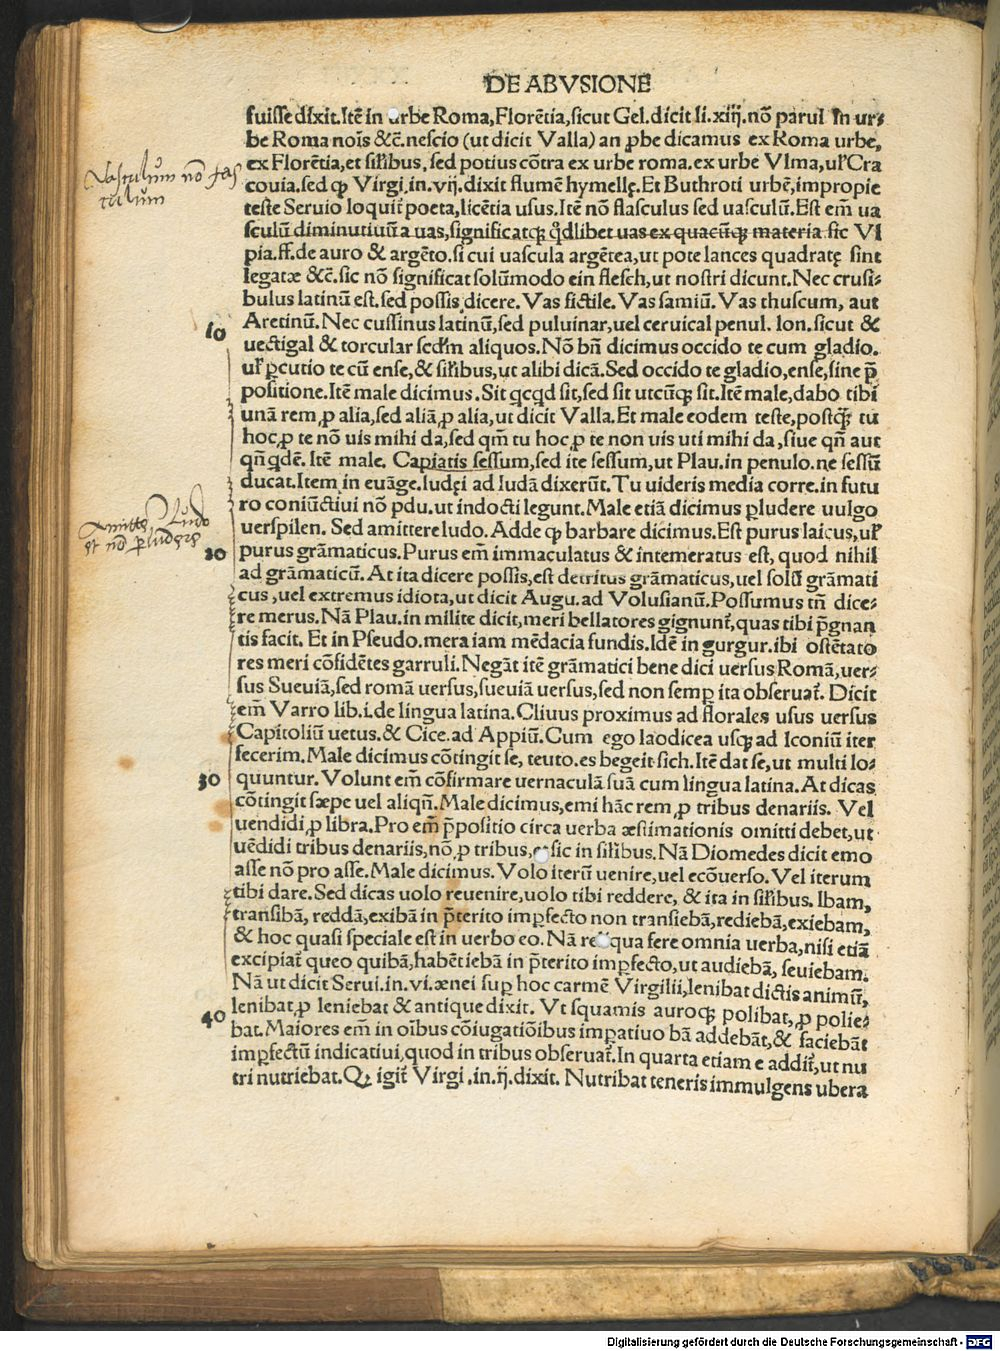 DE ABVSIONE
fuisse dixit.Itē in urbe Roma,Florētia,sicut Gel.dicit li.xiij.nō parui In ur-
be Roma noīs &c̄.nescio (ut dicit Valla) an ꝓbe dicamus ex Roma urbe,
ex Florētia,et siłibus, sed potius cōtra ex urbe roma.ex urbe Vlma,uł Cra
couia.sed ꝙ Virgi.in.vij.dixit flumē hymellę.Et Buthroti urbē,impropie
teste Seruio loquit̃ poeta,licētia usus.Itē nō flasculus sed uasculū.Est em̄ ua
sculū diminutiuū a uas,significatq; qđlibet uas ex quacūq; materia sic Vl
pia.ff.de auro & argēto.si cui uascula argētea,ut pote lances quadratę sint
legatæ &c̄.sic nō significat solūmodo ein flesch,ut nostri dicunt.Nec crusi-
bulus latinū est.sed possis dicere. Vas fictile. Vas samiū. Vas thuscum, aut
Aretinū. Nec cussinus latinū,sed puluinar,uel ceruical penul. lon.sicut &
10
uectigal & torcular sedm̄ aliquos.Nō bn̄ dicimus occido te cum gladio.
uł ꝑcutio te cū ense,& siłibus,ut alibi dicā.Sed occido te gladio,ense,sine p̄
positione.Itē male dicimus.Sit qcqd sit,sed sit utcūq; sit.Itē male,dabo tibi
unā rem,ꝓ alia,sed aliā,ꝓ alia,ut dicit Valla.Et male eodem teste,postq̄; tu
hoc,ꝓ te nō uis mihi da,sed qm̄ tu hoc,ꝓ te non uis uti mihi da,siue qn̄ aut
qn̄qdē. Itē male. Capiatis sessum,sed ite sessum,ut Plau.in penulo.ne sessū
ducat.Item in euāge.Iudęi ad Iudā dixerūt.Tu uideris media corre.in futu
ro coniūctiui nō pdu.ut indocti legunt.Male etiā dicimus ꝑludere uulgo
uerspilen. Sed amittere ludo. Adde ꝙ barbare dicimus.Est purus laicus,uł
20
purus grāmaticus.Purus em̄ immaculatus & intemeratus est, quod nihil
ad grāmaticū. At ita dicere possis,est detritus grāmaticus,uel solū grāmati
cus,uel extremus idiota,ut dicit Augu.ad Volusianū.Possumus tn̄ dice-
re merus. Nā Plau.in milite dicit,meri bellatores gignunt̃,quas tibi p̄gnan
tis facit. Et in Pseudo.mera iam mēdacia fundis.Idē in gurgur.ibi ostētato
res meri cōfidētes garruli.Negāt itē grāmatici bene dici uersus Romā,uer-
sus Sueuiā,sed romā uersus,sueuiā uersus,sed non semꝑ ita obseruat̃. Dicit
em̄ Varro lib.i.de lingua latina. Cliuus proximus ad florales usus uersus
Capitoliū uetus.& Cice.ad Appiū.Cum ego laodicea usq; ad Iconiū iter
fecerim. Male dicimus cōtingit se, teuto.es begeit sich.Itē dat se,ut multi lo-
30
quuntur. Volunt em̄ cōfirmare uernaculā suā cum lingua latina. At dicas
cōtingit sæpe uel aliqn̄.Male dicimus,emi hāc rem,ꝓ tribus denariis. Vel
uendidi,ꝓ libra.Pro em̄ p̄positio circa uerba æstimationis omitti debet,ut
uēdidi tribus denariis,nō.ꝓ tribus, sic in siłibus. Nā Diomedes dicit emo
asse nō pro asse. Male dicimus. Volo iterū uenire,uel ecōuerso. Vel iterum
tibi dare. Sed dicas uolo reuenire,uolo tibi reddere, & ita in siłibus. Ibam,
transibā, reddā,exibā in p̄terito imꝑfecto non transiebā,rediebā,exiebam,
& hoc quasi speciale est in uerbo eo. Nā reliqua fere omnia uerba,nisi etiā
excipiat̃ queo quibā,habēt iebā in p̄terito imꝑfecto,ut audiebā, seuiebam.
Nā ut dicit Serui.in.vi.ænei suꝑ hoc carmē Virgilii,lenibat dictis animū,
lenibat,ꝓ leniebat & antique dixit. Vt squamis auroq; polibat,ꝓ polie-
40
bat. Maiores em̄ in oībus cōiugatiōibus imꝑatiuo bā addebāt,& faciebāt
imꝑfectū indicatiui,quod in tribus obseruat̃.In quarta etiam e addit̃,ut nu
tri nutriebat. Qꝫ igit̃ Virgi.in.ij.dixit. Nutribat teneris immulgens ubera
Vasculum nō fas
culum
Amitte Ludo
et nō perludere
Digitalisierung gefördert durch die Deutsche Forschungsgemeinschaft - DFG